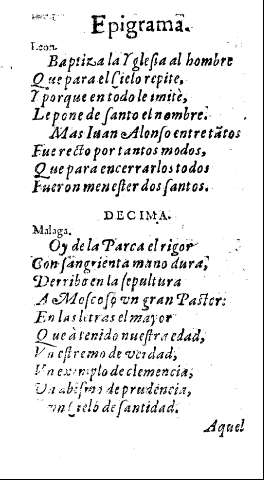 Epigrama.
Leon.
Baptiza la Yglesia al hombre
Que para el Cielo repite,
Y porque en todo le imite,
Le pone de santo el nombre.
Mas Iuan Alonso entre tãtos
Fue recto por tantos modos,
Que para encerrarlos todos
Fueron menester dos santos.
DECIMA.
Malaga.
Oy de la Parca el rigor
Con sangrienta mano dura,
Derribo en la sepultura
A Moscoso vn gran Pastor:
En las letras el mayor
Que à tenido nuestra edad,
Vn estremo de verdad,
Vn exemplo de clemencia,
Vn abismo de prudencia,
vn Cielo de santidad.
Aquel